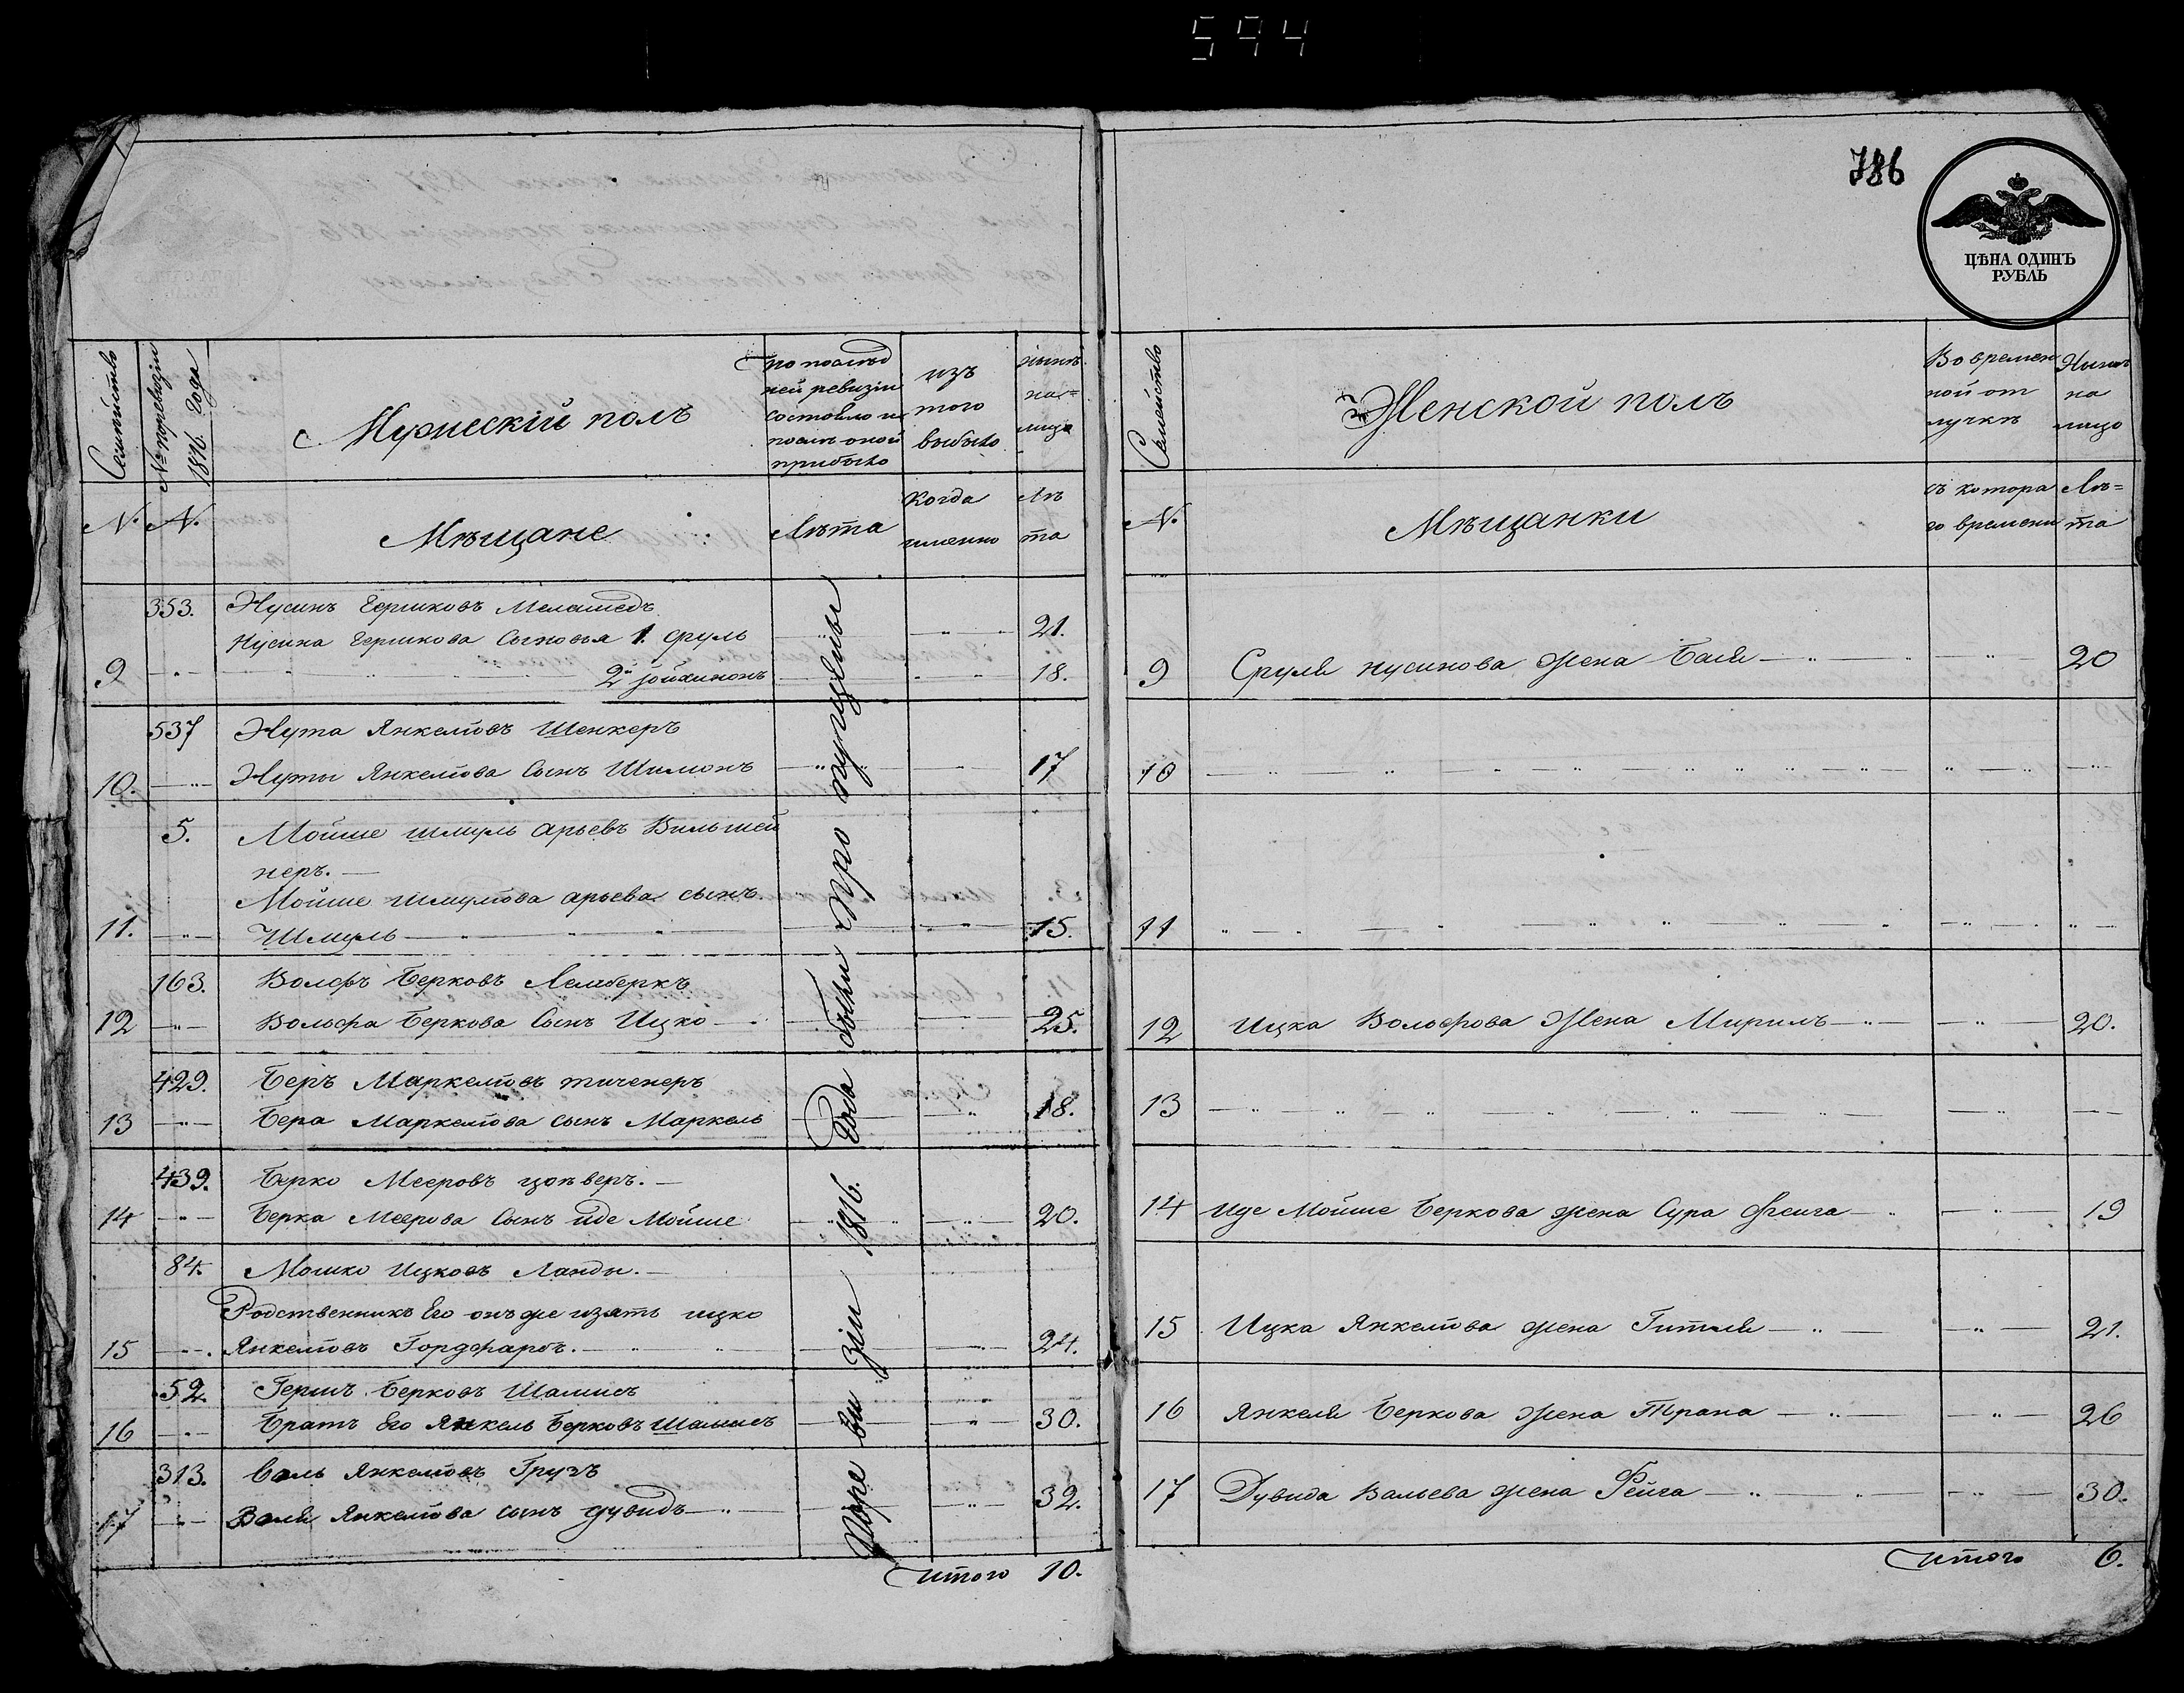 594
786
ЦѢНА ОДИНЪ
РУБЛЬ
Семѣйство
№ по ревизіи
1816. Года
Мужескій полъ
по послѣд
ней ревизіи
состояло и
послѣ оной
прибыло
изъ
того
выбыло
нынѣ
на=
лицо
№.
№.
Мѣщане
Лѣта
Когда
именно
Лѣ
та
353.
Нусинъ Гершковъ Меламедъ
Нусина Гершкова Сыновья 1. сруль
21.
9
2й Іойхинонъ
18.
537
Нута Янкелювъ Шенкеръ
10.
Нуты Янкелюва Сынъ Шимонъ
17
5.
Мойше шмуль арьевъ Вильшей
неръ.
Мойше шмулюва арьева сынъ
11.
Шмуль
15.
163.
Волфъ Берковъ Лемберкъ
12
Вольфа Беркова Сынъ Ицко
25.
429.
Беръ Маркелювъ тиченеръ
13
Бера Маркелюва сынъ Маркель
18.
439.
Берко Мееровъ цонверъ.
14
Берка Меерова Сынъ иде Мойше
20.
84.
Мошко Ицковъ Ланды.
Родственникъ Его онъ же изять ицко
15
Янкелювъ Горфарбъ.
24.
52.
Гершъ Берковъ Шамисъ
16
Братъ Его Янкель Берковъ Шамисъ
30.
313.
Валь Янкелювъ Грузъ
17
Валя Янкелюва сынъ дувидъ
32.
По ре ви зіи 1816. Года были пропущены
итого 10.
Семейство
Женской полъ
Во времен
ной от
лучкѣ
Нынѣ
на
лицо
№.
Мѣщанки
съ котора
го времени
Лѣ=
та
9
Сруля нусинова жена Бася
20
10
11
12
Ицка Вольфова Жена Мирилъ
20.
13
14
Иде Мойше Беркова жена Сура Фейга
19
15
Ицка Янкелюва жена Гитля
21.
16
Янкеля Беркова жена Трана
26
17
Дувида Вальева жена Фейга
30.
итого 6.